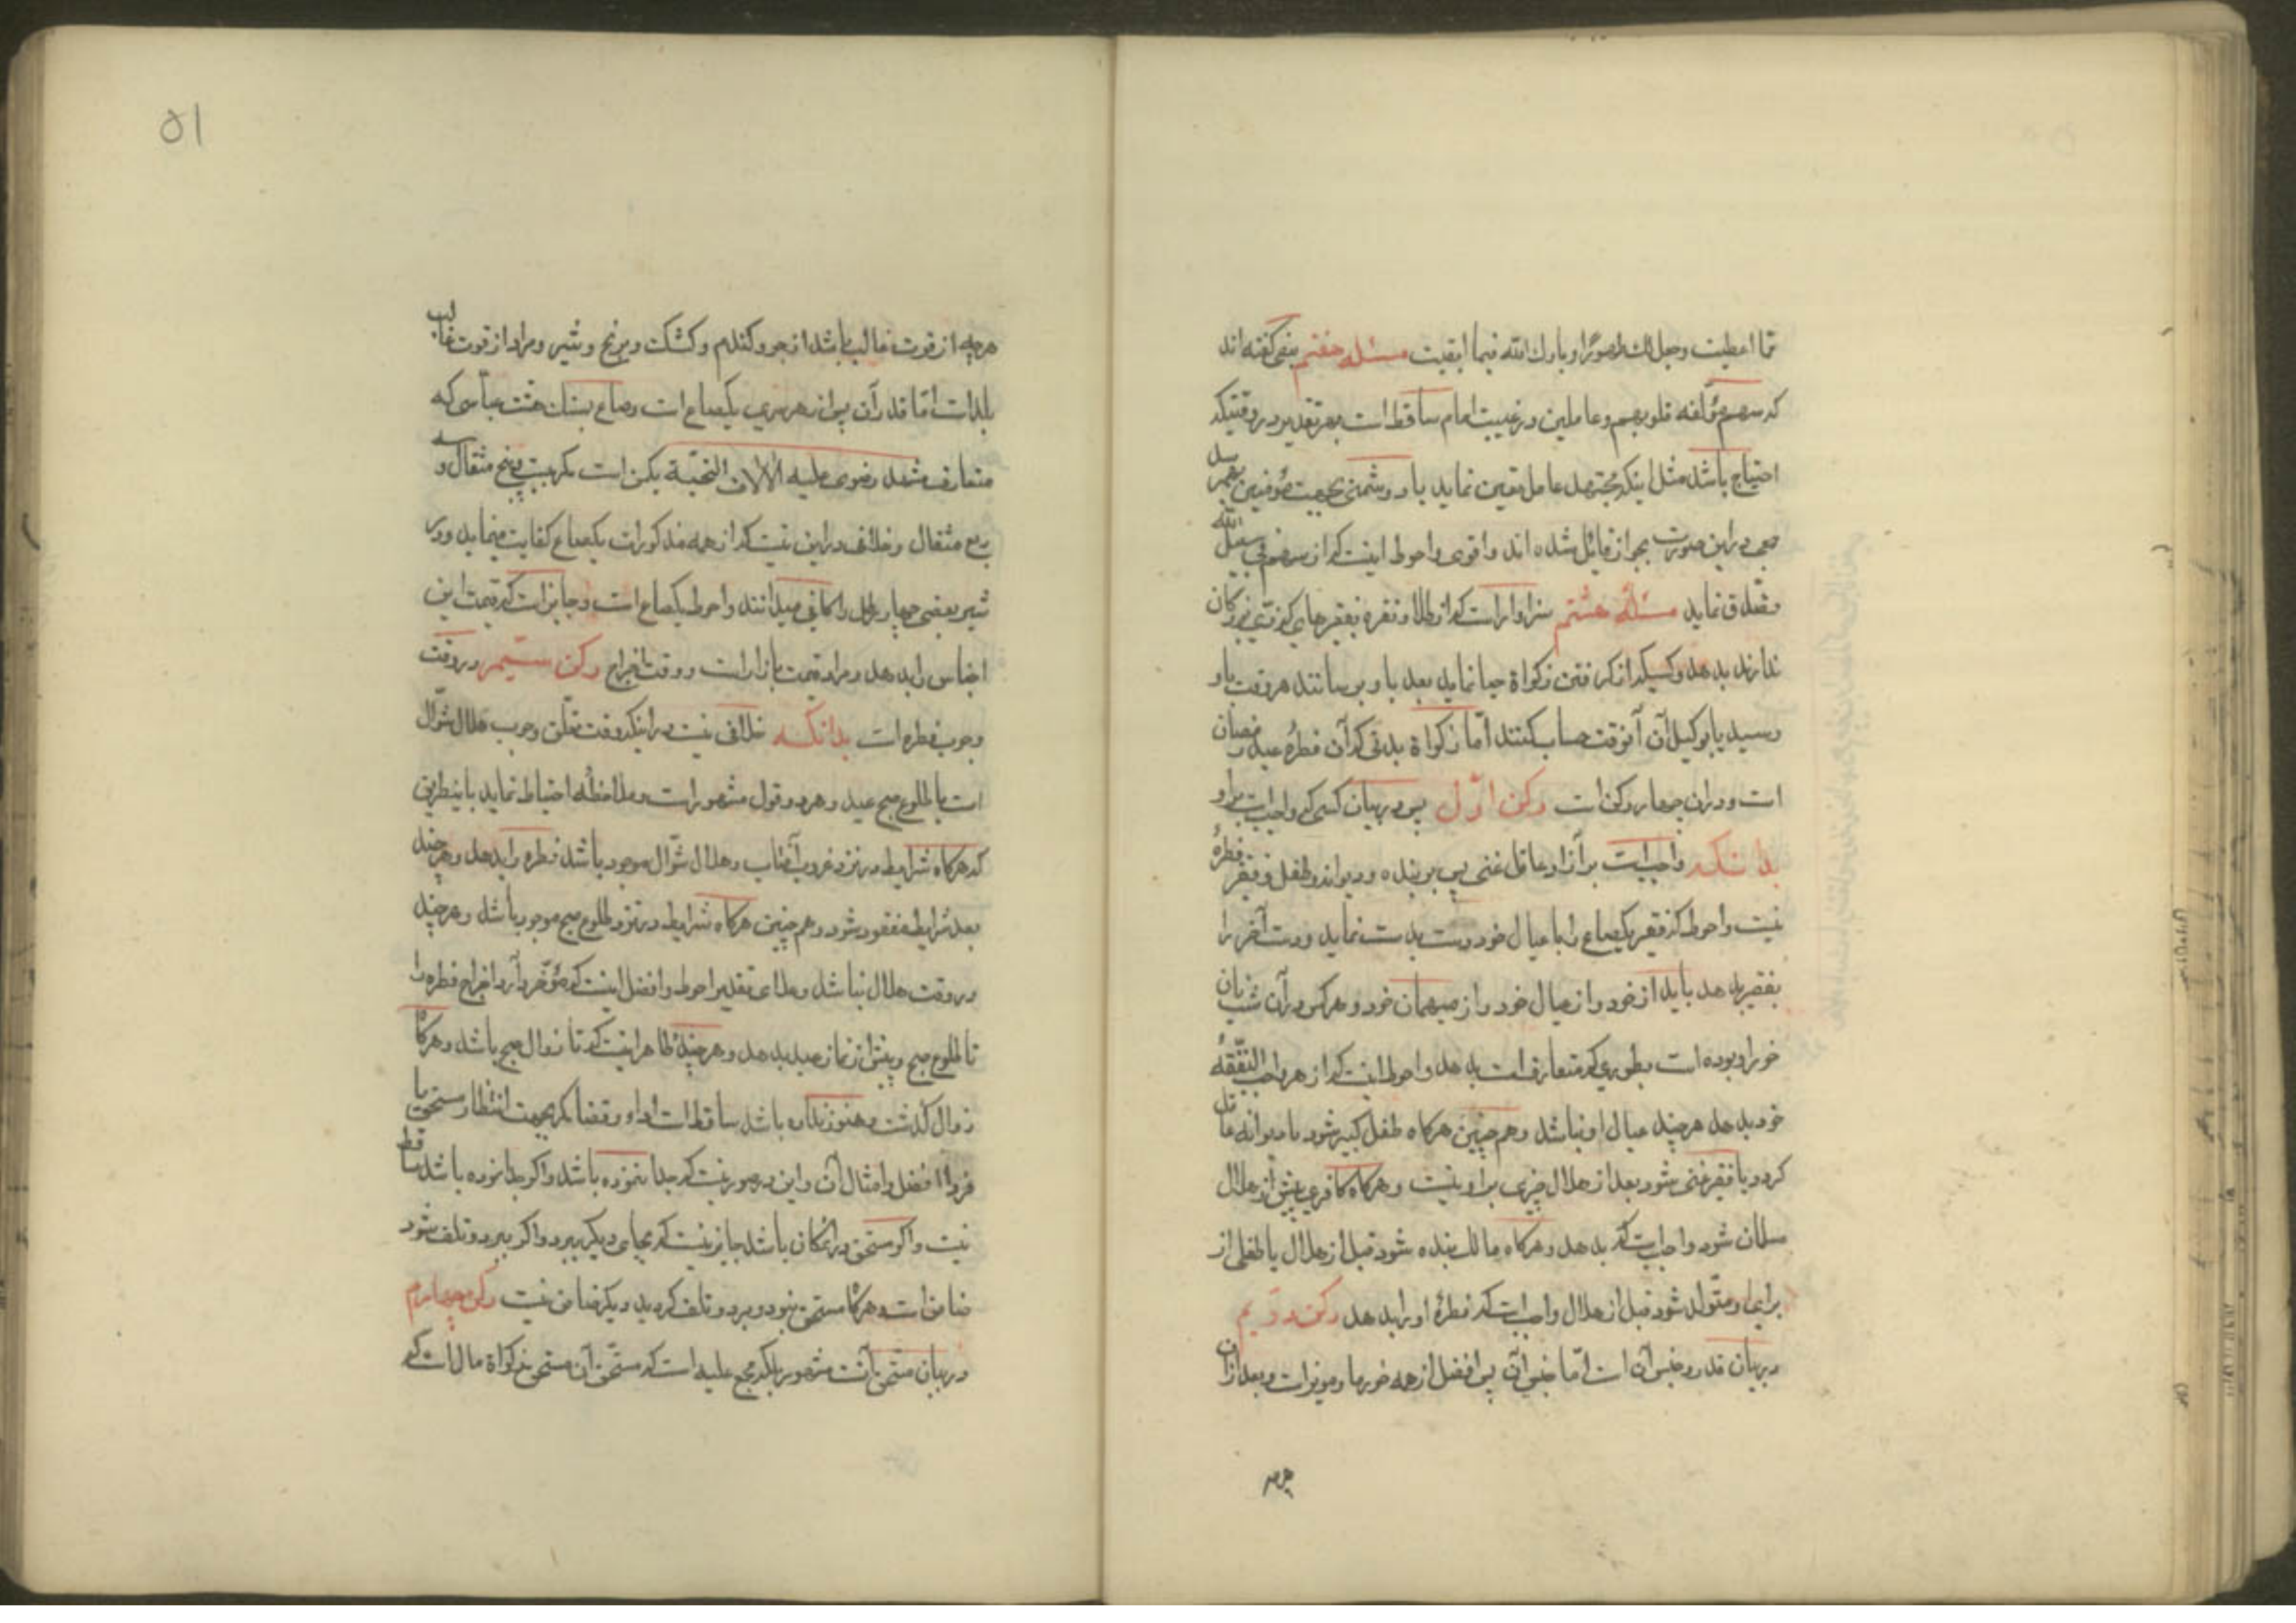 مما اعطیت وجعل لك طهورًا وبارك الله فیما ابقیت مسئله هفتم بعضی کفته اند
که سهم مؤلفه قلوبهم وعاملین در غیبت امام ساقط است بهر تقدیر در وقتیکه
احتیاج باشد مثل اینکه مجتهد عامل تعین نماید یا دشمنی بجهت مؤمنین بهم رسد
جمعی در این صورت بجواز قائل شده اند واقوی واحوط اینست که از سهم فی سبیل الله
تصدّق نماید مسئلهٔ هشتم سزاوار است که از طلا ونقره بفقرهای که
ندارند بدهد وکسیکه از کرفتن زکواة حیا نماید بعد باو برسانند هر وقت باو
رسید یا بوکیل آن آنوقت حساب کنند امّا زکواة بدنی که آن فطرهٔ عید رمضان
است ودران چهار رکن است رکن اوّل پس در بیان کسی که واجب است بر او
بدانکه واجبست بر آزاد عاقل غنی پس بر بنده ودیوانه وطفل وفقیر فطرهٔ
نیست واحوط که فقیر یکصاع را با عیال خود دست بدست نماید ودست آخر را
بفقیر بدهد باید از خود واز عیال خود واز میهمان خود وهر کس در آن شب نان
خور او بوده است بطوری که متعارف است بدهد واحوط اینست که از هر واجب النّفقهٔ
خود بدهد هر چند عیال او نباشد وهم چنین هرکاه طفل کبیر شود یا دیوانه عاقل
کردد یا فقیر غنی شود بعد از هلال چیزی بر او نیست وهرکاه کافری پیش از هلال
مسلمان شود واجب است که بدهد وهرکاه مالك بنده شود قبل از هلال یا طفلی از
برای او متولّد شود قبل از هلال واجب است که فطرهٔ او را بدهد رکن دویم
در بیان قدر وجنس آن است امّا جنس آن پس افضل از همه خرما ومویز است وبعد از آن
هرچه
هرچه از قوت غالب باشد از جو وکندم وکشك وبرنج وشیر ومراد از قوت غالب
بلد است امّا قدر آن پس از هر چیزی یکصاع است وصاع بسنك هشت عباسی که
متعارف مشهد رضوی علیه الالاف التحیّة یکمن است مکر بیست وپنج مثقال وسه
ربع مثقال وخلاف در این نیست که از همه مذکورات یکصاع کفایت مینماید ودر
شیر بعضی چهار رطل را کافی میدانند واحوط یکصاع است وجایز است که قیمت این
اجناس را بدهد ومراد قیمت بازار است ووقت اخراج رکن سیّم در وقت
وجوب فطره است بدانکه خلافی نیست در اینکه وقت تعلّق وجوب هلال شوّال
است یا طلوع صبح عید وهر دو قول مشهور است وملاحظه احتیاط نماید باینطریق
که هرکاه شرایط در نزد غروب آفتاب وهلال شوّال موجود باشد فطره را بدهد وهرچند
بعد شرایط مفقود شود وهم چنین هرکاه شرایط در نزد طلوع صبح موجود باشد وهرچند
در وقت هلال نباشد وعلی ای تقدیر احوط وافضل اینست که مؤخّر دارد اخراج فطره را
تا طلوع صبح وپیش از نماز عید بدهد وهرچند ظاهر اینست که تا زوال صبح باشد وهرکاه
زوال کذشت وهنوز نداده باشد ساقط است اداء وقضا مکر بجهت انتظار مستحق یا
فرد افضل وامثال آن واین در صورتیست که جدا ننموده باشد واکر جدا نموده باشد ساقط
نیست واکر مستحق در انمکان باشد جایز نیست که بجای دیکر ببرد واکر ببرد وتلف شود
ضامن است وهرکاه مستحق نبود وبرد وتلف کردید دیکر ضامن نیست رکن چهارم
در بیان مستحق آنست مشهور بلکه مجمع علیه است که مستحق آن مستحق زکواة مال است که
۵۱